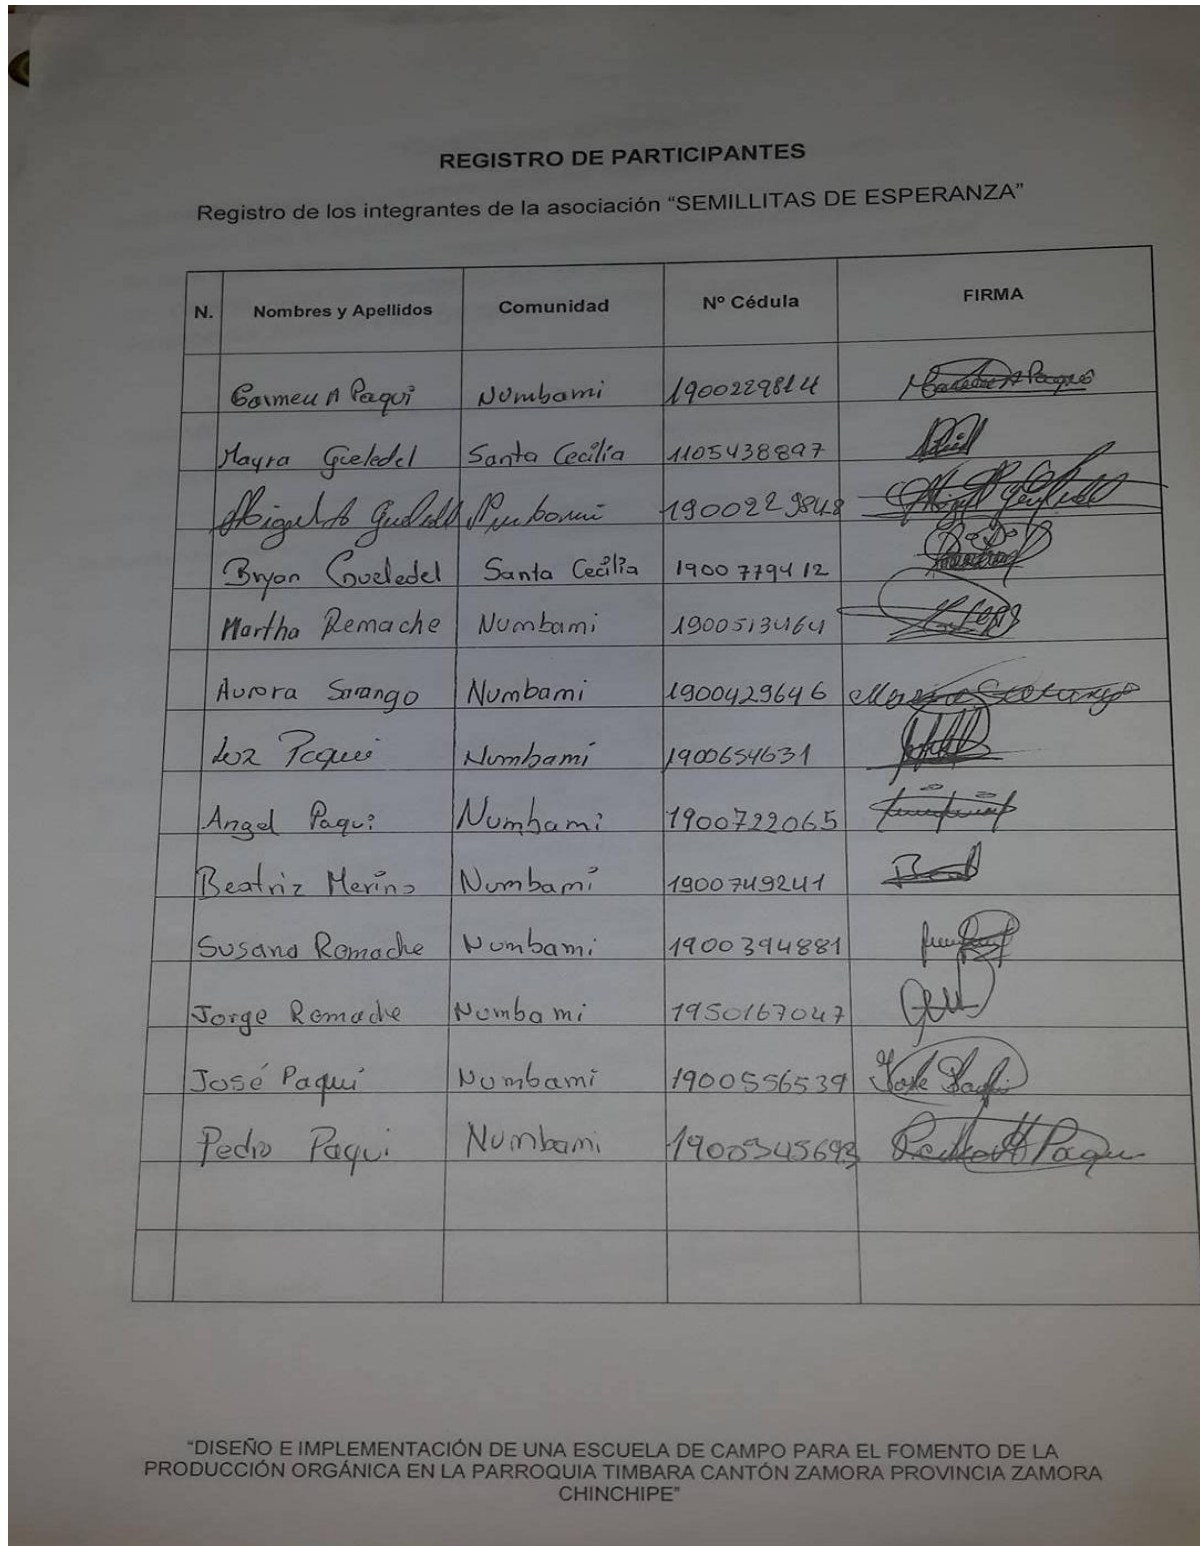 REGISTRO DE PARTICIPANTES
Registro de los integrantes de la asociación “SEMILLITAS DE ESPERANZA”
N. Nombres y Apellidos Comunidad Nº Cédula FIRMA
Carmen A Paqui Numbami 1900229814
Mayra Gueledel Santa Cecilia 1105438897
Miguel A Gueledel Numbami 1900229848
Bryan Gueledel Santa Cecilia 1900779412
Martha Remache Numbami 1900513464
Aurora Sarango Numbami 1900429646
Luz Paqui Numbami 1900654631
Angel Paqui Numbami 1900722065
Beatriz Merino Numbami 1900749241
Susana Remache Numbami 1900394881
Jorge Remache Numbami 1950167047
José Paqui Numbami 1900556539 Jose Paqui
Pedro Paqui Numbami Pedro A Paqui
“DISEÑO E IMPLEMENTACIÓN DE UNA ESCUELA DE CAMPO PARA EL FOMENTO DE LA
PRODUCCIÓN ORGÁNICA EN LA PARROQUIA TIMBARA CANTÓN ZAMORA PROVINCIA ZAMORA
CHINCHIPE”